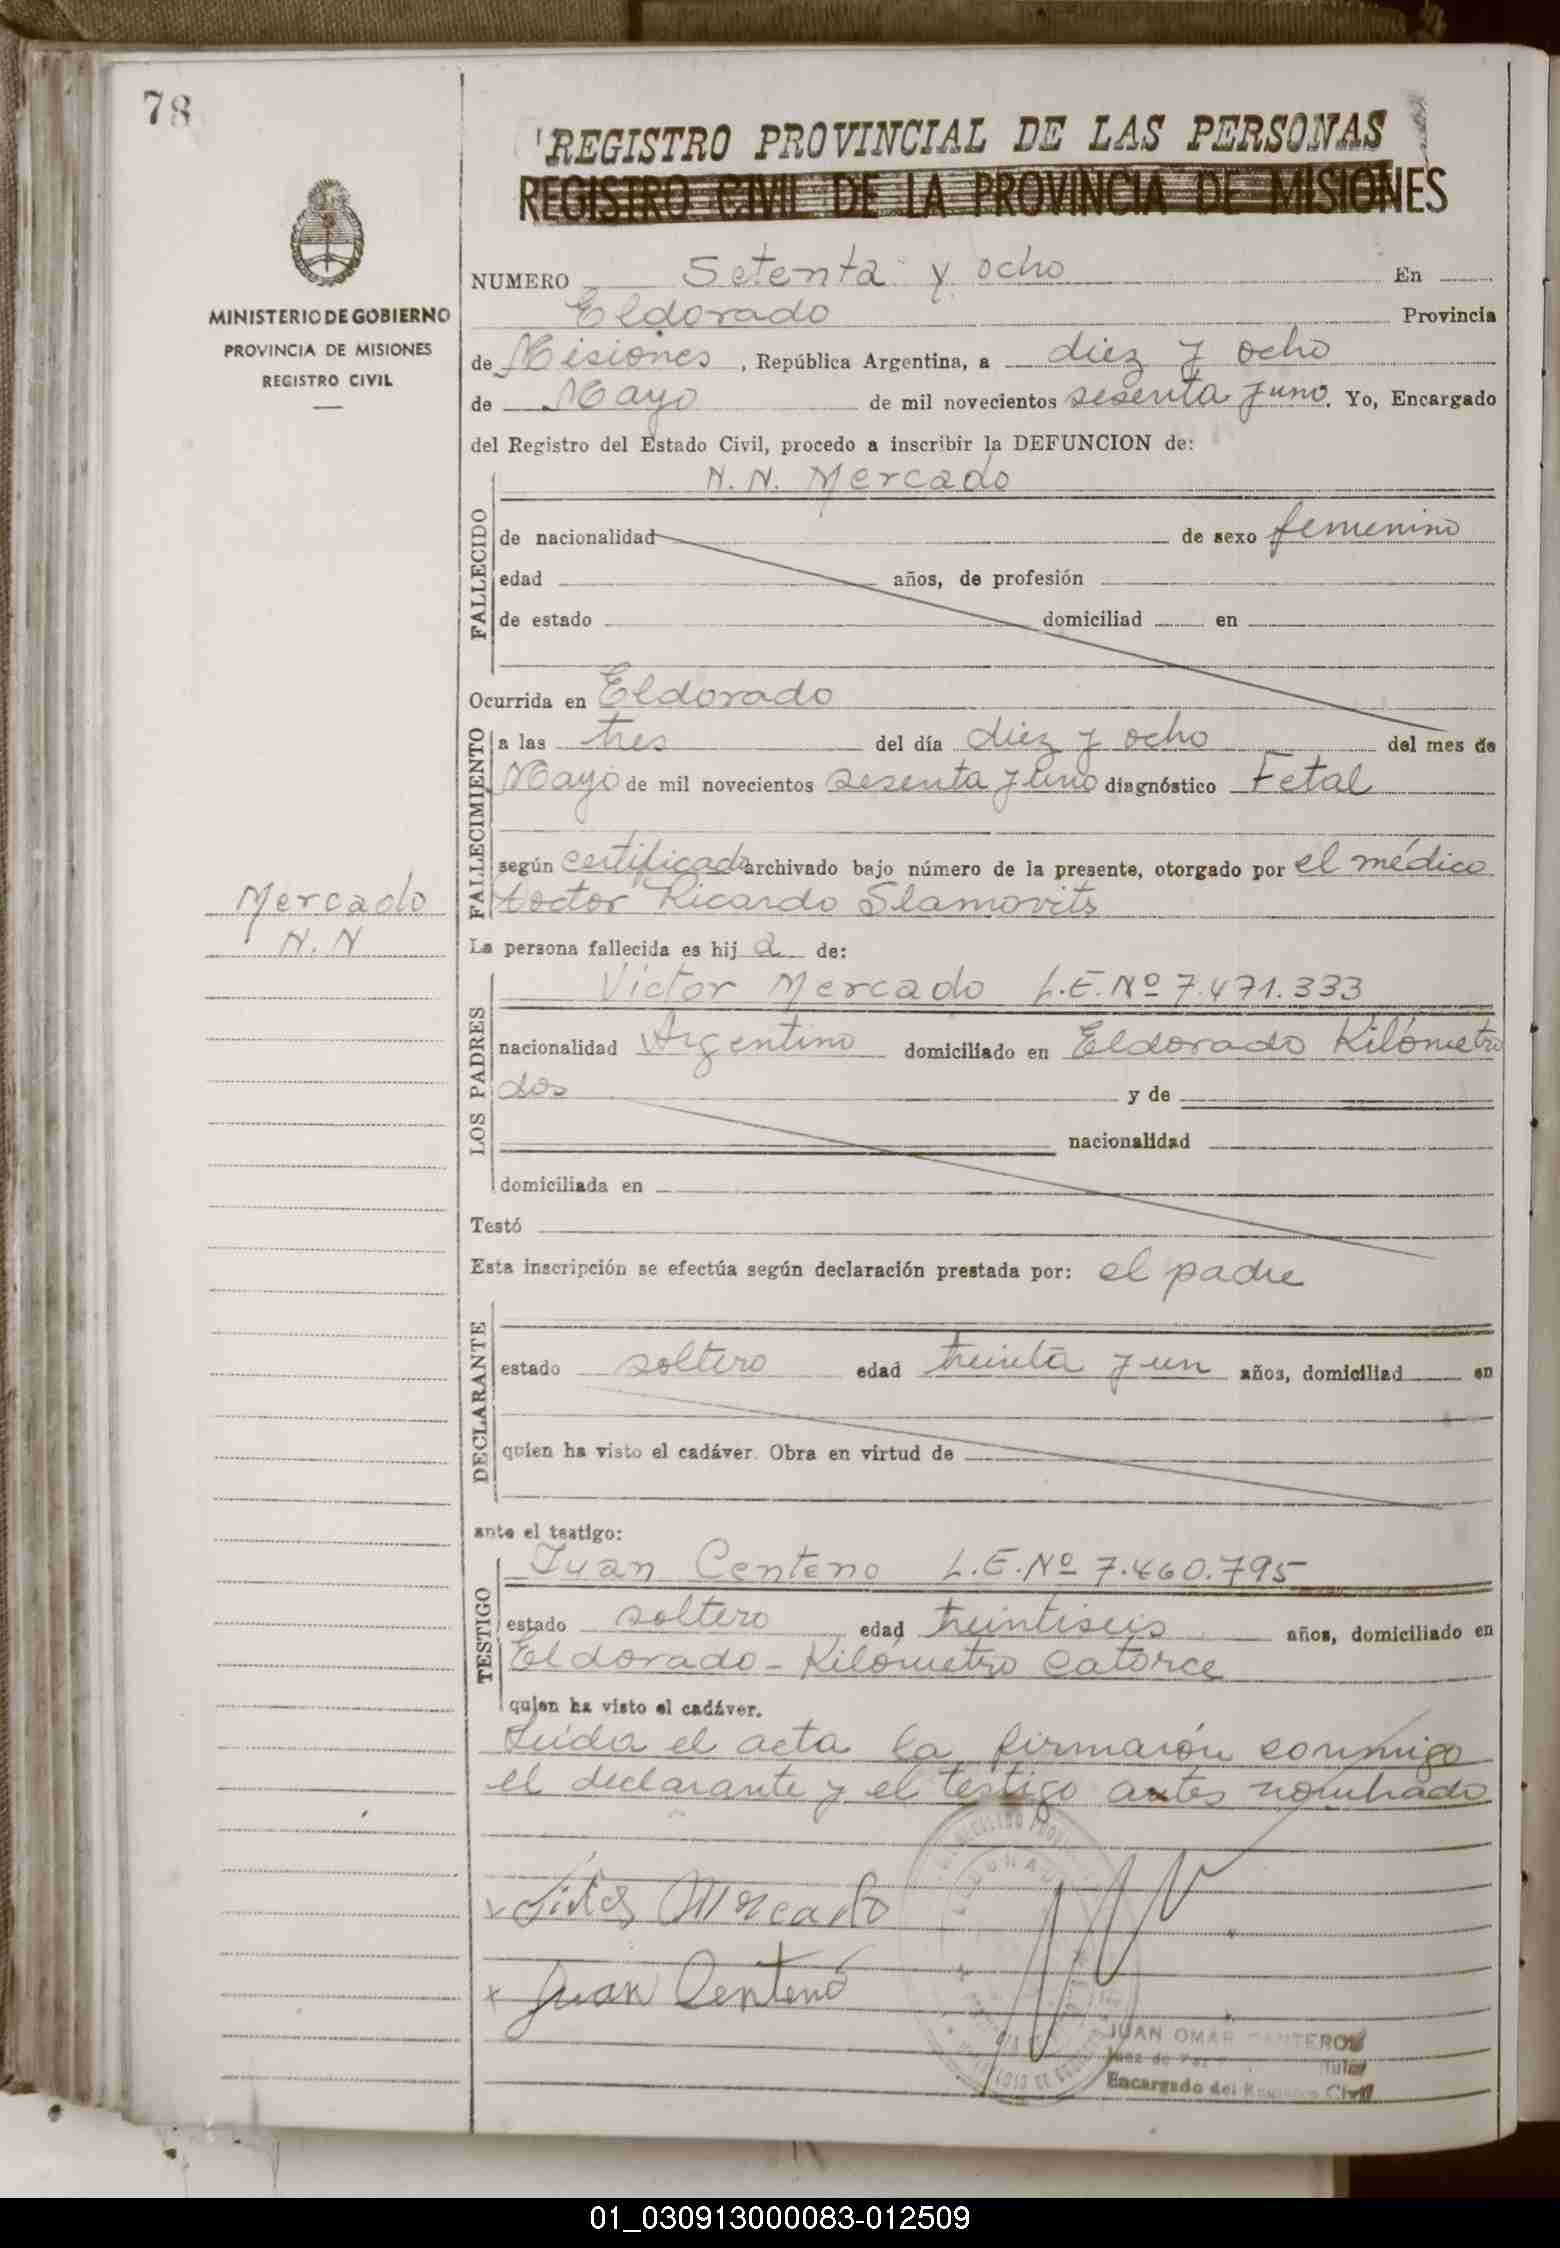 78
REGISTRO PROVINCIAL DE LAS PERSONAS
REGISTRO CIVIL DE LA PROVINCIA DE MISIONES
MINISTERIO DE GOBIERNO
PROVINCIA DE MISIONES
REGISTRO CIVIL
NUMERO Setenta y ocho En
Eldorado Provincia
de Misiones, República Argentina, a diez y ocho
de Mayo de mil novecientos sesenta y uno. Yo, Encargado
del Registro del Estado Civil, procedo a inscribir la DEFUNCION de:
FALLECIDO
N. N. Mercado
de nacionalidad de sexo femenino
edad años, de profesión
de estado domiciliad en
Ocurrida en Eldorado
FALLECIMIENTO
a las tres del día diez y ocho del mes de
Mayo de mil novecientos sesenta y uno diagnóstico Fetal
según certificado archivado bajo número de la presente, otorgado por el médico
doctor Ricardo Slamovits
Mercado
N. N
La persona fallecida es hij a de:
LOS PADRES
Víctor Mercado L.E.Nº 7.471.333
nacionalidad Argentino domiciliado en Eldorado Kilómetro
dos y de
nacionalidad
domiciliada en
Testó
Esta inscripción se efectúa según declaración prestada por: el padre
DECLARANTE
estado soltero edad treinta y un años, domiciliad en
quien ha visto el cadáver. Obra en virtud de
ante el testigo:
TESTIGO
Juan Centeno L.E.Nº 7.460.795
estado soltero edad treintiseis años, domiciliado en
Eldorado - Kilómetro catorce
quien ha visto el cadáver.
Leida el acta la firmaron conmigo
el declarante y el testigo antes nombrado
x Victor Mercado
x Juan Centeno
JUAN OMAR CANTEROS
Juez de Paz Titular
Encargado del Registro Civil
01_030913000083-012509